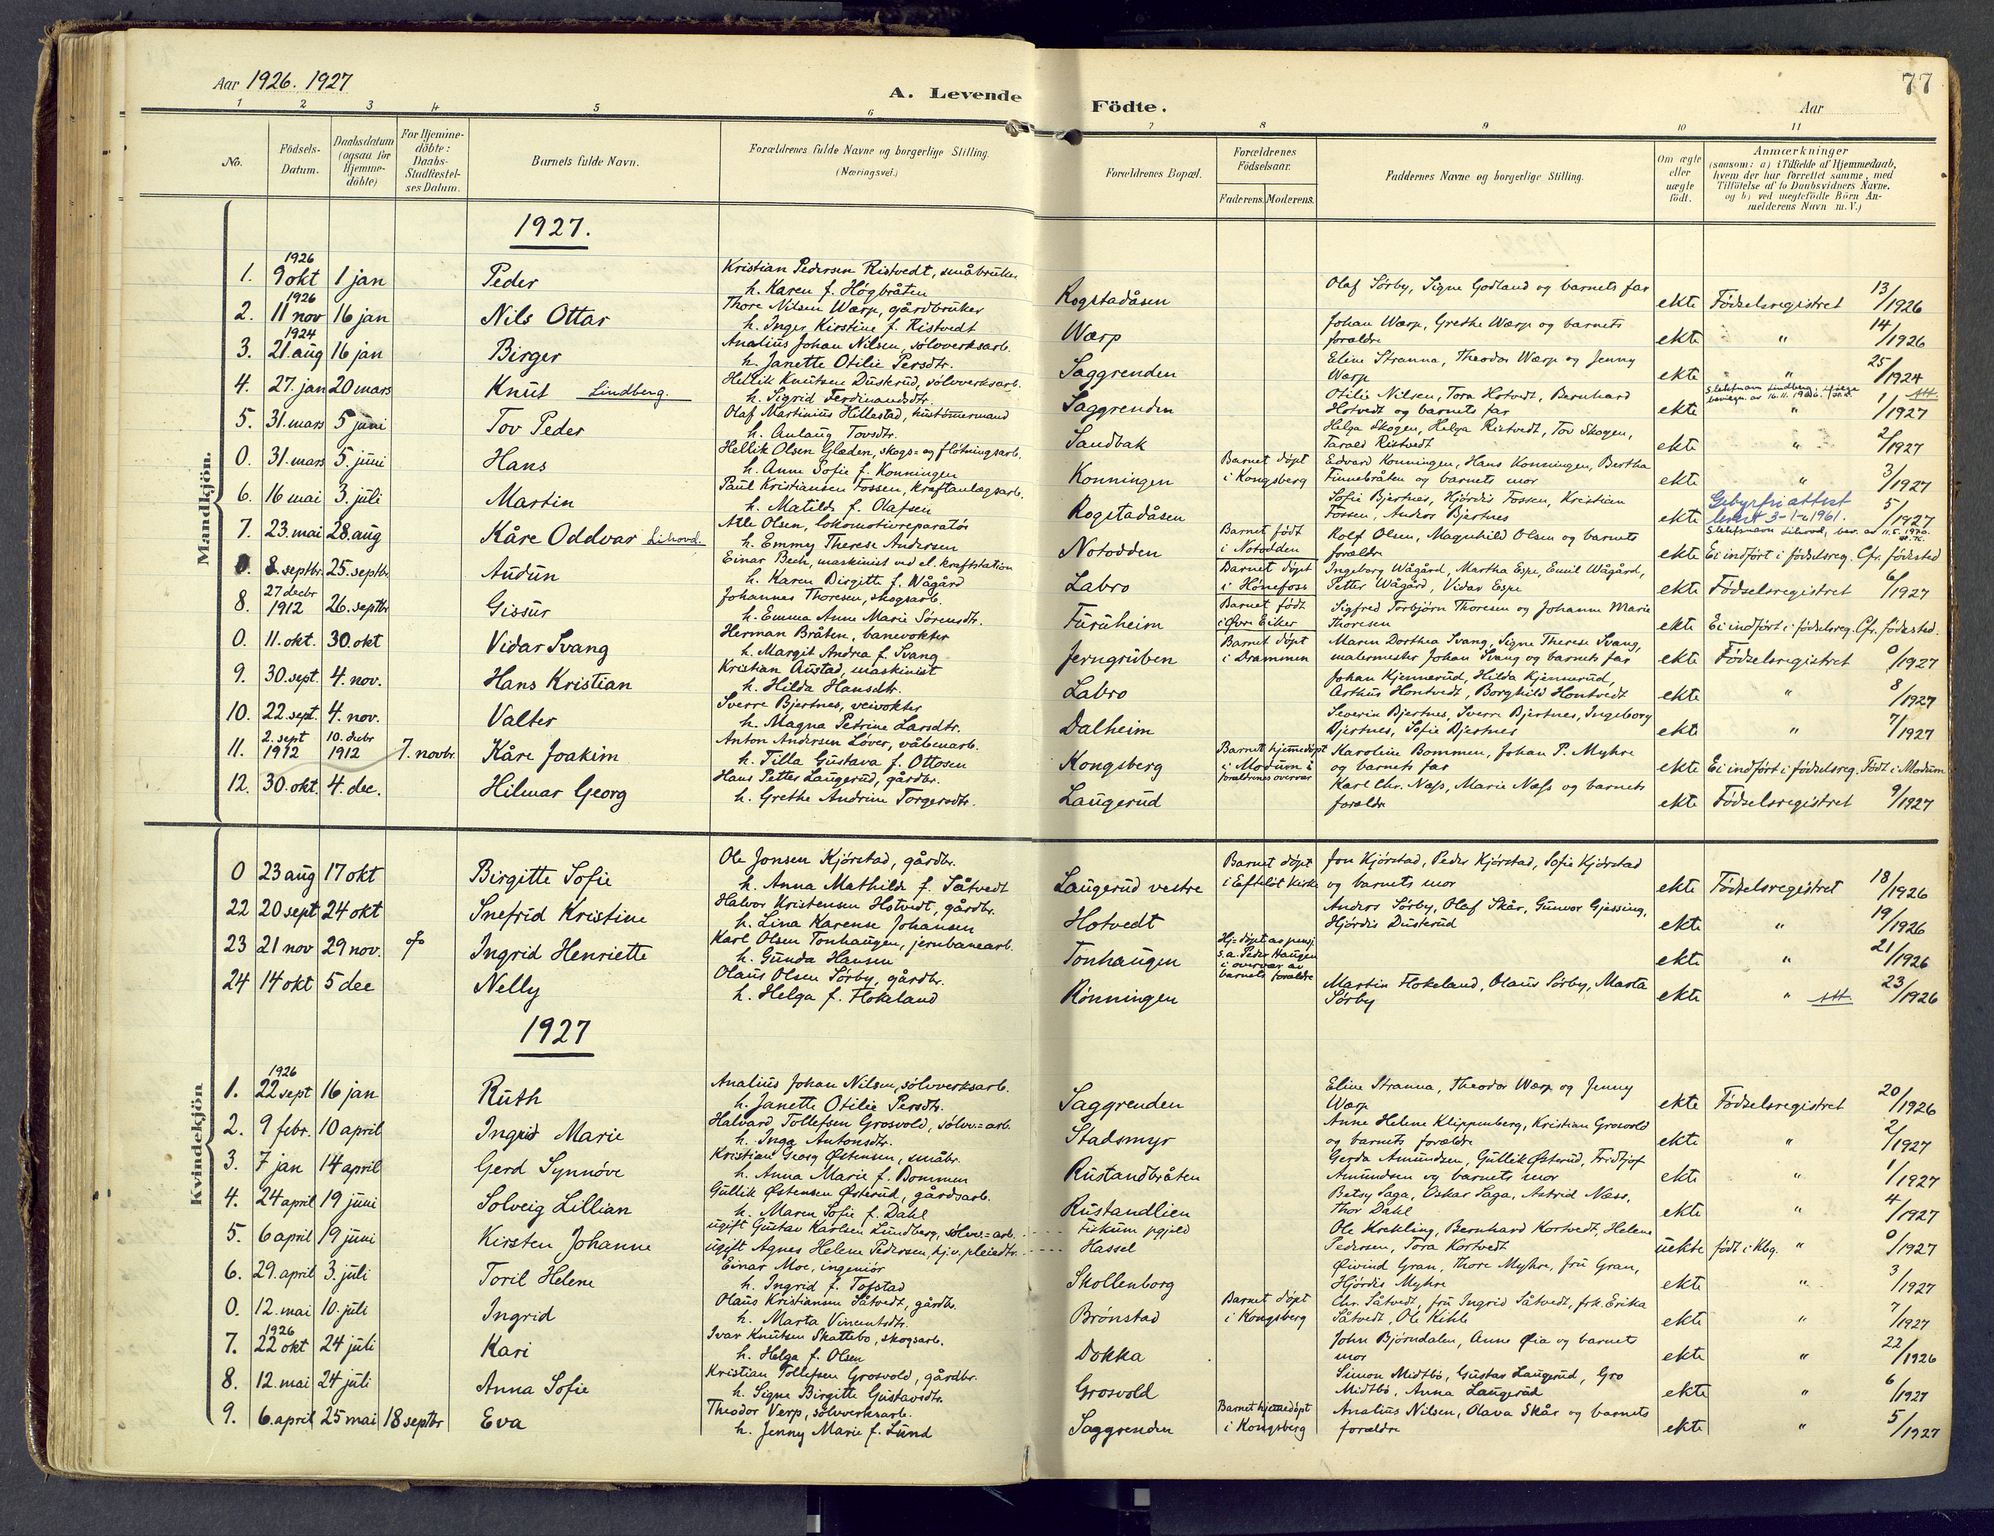 Aar 1926. 1927
A. Levende Födte.
Aar
77
1 2 3 4 5 6 7 8 9 10 11
No.
Födsels-
Datum.
Daabsdatum
(ogsaa for
Hjemme-
döbte)
For Hjemme-
döbte:
Daabs-
Stadfæstel-
ses Datum.
Barnets fulde Navn.
Forældrenes fulde Navne og borgerlige Stilling.
(Næringsvei.)
Forældrenes Bopæl.
Forældrenes
Födselsaar.
Faderens. Moderens.
Faddernes Navne og borgerlige Stilling.
Om ægte
eller
uægte
födt.
Anmærkninger
(saasom: a) i Tilfælde af Hjemmedaab,
hvem der har forrettet samme, med
Tilföielse af to Daabsvidners Navne.
og b) ved uægtefödte Börn An-
melderens Navn m. V.)
Mandkjön.
1927.
1. 1926 9 okt 1 jan Peder
Kristian Pedersen Ristvedt, småbruker
h. Karen f. Högbråten
Rogstadåsen
Olaf Sørby, Signe Godland og barnets far
ekte Födselsregistret 13/1926
2. 1926 11 nov 16 jan Nils Ottar
Thore Nilsen Wærp, gårdbruker
h. Inger Kirstine f. Ristvedt
Wærp
Johan Wærp, Grethe Wærp og barnets
forældre
ekte " 14/1926
3. 1924 21 aug 16 jan Birger
Analius Johan Nilsen, sølvverksarb.
h. Janette Otilie Persdtr.
Saggrenden
Eline Stranna, Theodor Wærp og Jenny
Wærp
ekte " 25/1924
4. 27. jan 20 mars Knut Lindberg.
Hellik Knutsen Duskrud, sølvverksarb.
h. Sigrid Ferdinandsdtr.
Saggrenden
Otilie Nilsen, Tora Hotvedt, Bernhard
Hotvedt og barnets far
ekte " 1/1927
5. 31. mars 5 juni Tov Peder
Olaf Martinius Hillestad, hustømermand
h. Anlaug Tovsdtr.
Sandbak
Helga Skogen, Helga Ristvedt, Tov Skogen,
Tarald Ristvedt
ekte " 2/1927
0. 31. mars 5. juni Hans
Hellik Olsen Glæden, skogs= og fløtningsarb.
h. Anne Sofie f. Konningen
Konningen
Barnet døpt
i Kongsberg
Edvard Konningen, Hans Konningen, Bertha
Finnebråten og barnets mor
ekte " 3/1927
6. 16 mai 3. juli Martin
Paul Kristiansen Fossen, kraftanlægsarb.
h. Matilde f. Olafsen
Rogstadåsen
Sofie Bjertnes, Hjördis Fossen, Kristian
Fossen, Andror Bjertnes
ekte Gebyrfri attest
5/1927
7. 23. mai 28. aug Kåre Oddvar Lihovd.
Atle Olsen, lokomotivreparatør
h. Emmy Therese Andersen
Notodden
Barnet født
i Notodden
Rolf Olsen, Magnhild Olsen og barnets
forældre
ekte Ei indført i fødselsreg. Cfr. fødested
8. septbr. 25. septbr. Audun
Einar Bech, maskinist ved el. kraftstation
h. Karen Birgitte f. Wågård
Labro
Barnet døpt
i Hønefoss
Ingeborg Wågård, Martha Espe, Emil Wågård,
Petter Wågård, Vidar Espe
ekte Födselsregistret 6/1927
8. 27 decbr 1912 26. septbr Gissur
Johannes Thoresen, skogsarb.
h. Emma Anne Marie Sörensdtr.
Furuheim
Barnet født
i Øvre Eiker
Sigfred Torbjörn Thoresen og Johanne Marie
Thoresen
ekte Ei indført i fødselsreg. Cfr. fødested.
0. 11. okt. 30 okt Vidar Svang
Herman Bråten, banevokter
h. Margit Andrea f. Svang
Jerngruben
Barnet døpt
i Drammen
Maren Dorthea Svang, Signe Therese Svang,
malermester Johan Svang og barnets far
ekte Födselsregistret 0/1927
9. 30. sept. 4. nov. Hans Kristian
Kristian Austad, maskinist
h. Hilda Hansdtr.
Labro
Johan Kjennerud, Hilda Kjennerud,
Arthur Hontvedt, Borghild Hontvedt
ekte " 8/1927
10. 22. sept. 4. nov. Valter
Sverre Bjertnes, veivokter
h. Magna Petrine Larsdtr.
Dalheim
Severin Bjertnes, Sverre Bjertnes, Ingeborg
Bjertnes, Sofie Bjertnes
ekte " 7/1927
11. 2. sept 1912 10. decbr 1912 7. novbr. Kåre Joakim
Anton Andersen Løver, våbenarb.
h. Tilla Gustava f. Ottosen
Kongsberg
Barnet hjemmedøpt
i Modum i
forældrenes overvær
Karoline Bommen, Johan P. Myhre
og barnets far
ekte Ei indført i fødselsreg. Født i Modum
12. 30. okt. 4. dec. Hilmar Georg
Hans Petter Laugerud, gårdbr.
h. Grethe Andrine Torgersdtr.
Laugerud
Karl Chr. Næss, Marie Næss og barnets
forældre
ekte Födselsregistret 9/1927
Kvindekjön
0 23 aug 17 okt Birgitte Sofie
Ole Jonsen Kjørstad, gårdbr.
h. Anna Mathilde f. Såtvedt
Laugerud vestre
Barnet døpt
i Efteløt kirke
Jon Kjørstad, Peder Kjørstad, Sofie Kjørstad
og barnets mor
ekte Födselsregistret 18/1926
22 20 sept 24 okt Snefrid Kristine
Halvor Kristensen Hotvedt, gårdbr.
h. Lina Karense Johansen
Hotvedt
Anders Sørby, Olaf Skår, Gunvor Gjessing,
Hjördis Duskrud
ekte " 19/1926
23 21 nov 29 nov. Ingrid Henriette
Karl Olsen Tonhaugen, jernbanearb.
h. Gunda Hansen
Tonhaugen
Hj=døpt av pens.
s.a. Peder Haugen
i overvær av
barnets forældre
ekte " 21/1926
24 14 okt 5 dec Nelly
Olaus Olsen Sørby, gårdbr.
h. Helga f. Flokeland
Rønningen
Martin Flokeland, Olaus Sørby, Marta
Sørby
ekte " 23/1926
1927
1. 1926 22 sept 16 jan Ruth
Analius Johan Nilsen, sølvverksarb.
h. Janette Otilie Persdtr.
Saggrenden
Eline Stranna, Theodor Wærp og Jenny
Wærp
ekte Födselsregistret 20/1926
2. 9 febr. 10 april Ingrid Marie
Halvard Tollefsen Grosvold, sølvv=arb.
h. Inga Antonsdtr.
Stadsmyr
Anne Helene Klippenberg, Kristian Grosvold
og barnets forældre
ekte " 2/1927
3. 7 jan 14 april Gerd Synnöve
Kristian Georg Østensen, småbr.
h. Anna Marie f. Bommen
Rustandbråten
Gerda Amundsen, Gullik Østerud, Fridtjof
Amundsen og barnets mor
ekte " 1/1927
4. 24 april 19 juni Solveig Lillian
Gullik Østensen Østerud, gårdsarb.
h. Maren Sofie f. Dahl
Rustandlien
Betsy Saga, Oskar Saga, Astrid Næss,
Thor Dahl
ekte " 4/1927
5. 6 april 19 juni Kirsten Johanne
ugift Gustav Karlsen Lundberg, sølvv=arb. Fiskum pgjeld
ugift Agnes Helene Pedersen, hj.v. pleiedtr. Hassel
Ole Krekling, Bernhard Kortvedt, Helene
Pedersen, Tora Kortvedt
uekte født i Kbg. " 0/1927
6. 29. april 3. juli Toril Helene
Einar Moe, ingeniør
h. Ingrid f. Tofstad
Skollenborg
Øivind Gran, Thore Myhre, fru Gran,
Hjördis Myhre
ekte " 3/1927
0. 12. mai 10. juli Ingrid
Olaus Kristiansen Såtvedt, gårdbr.
h. Marta Vincentsdtr.
Brønstad
Barnet døpt
i Kongsberg
Chr. Såtvedt, fru Ingrid Såtvedt, frk. Erika
Såtvedt, Ole Kihle
ekte " 7/1927
7. 1926 22 okt 24 juli Kari
Ivar Knutsen Skattebo, skogsarb.
h. Helga f. Olsen
Dokka
John Bjørndalen, Anne Øia og barnets
mor
ekte " 22/1926
8. 12. mai 24 juli Anna Sofie
Kristian Tollefsen Grosvold, gårdbr.
h. Signe Birgitte Gustavsdtr.
Grosvold
Simon Midtbö, Gustav Laugerud, Gro
Midtbö, Anna Laugerud
ekte " 6/1927
9. 6. april 25 mai 18 septbr Eva
Theodor Verp, sølvverksarb.
h. Jenny Marie f. Lund
Saggrenden
Barnet hjemedøpt
i Kongsberg
Analius Nilsen, Olava Skår og barnets
forældre
ekte " 5/1927